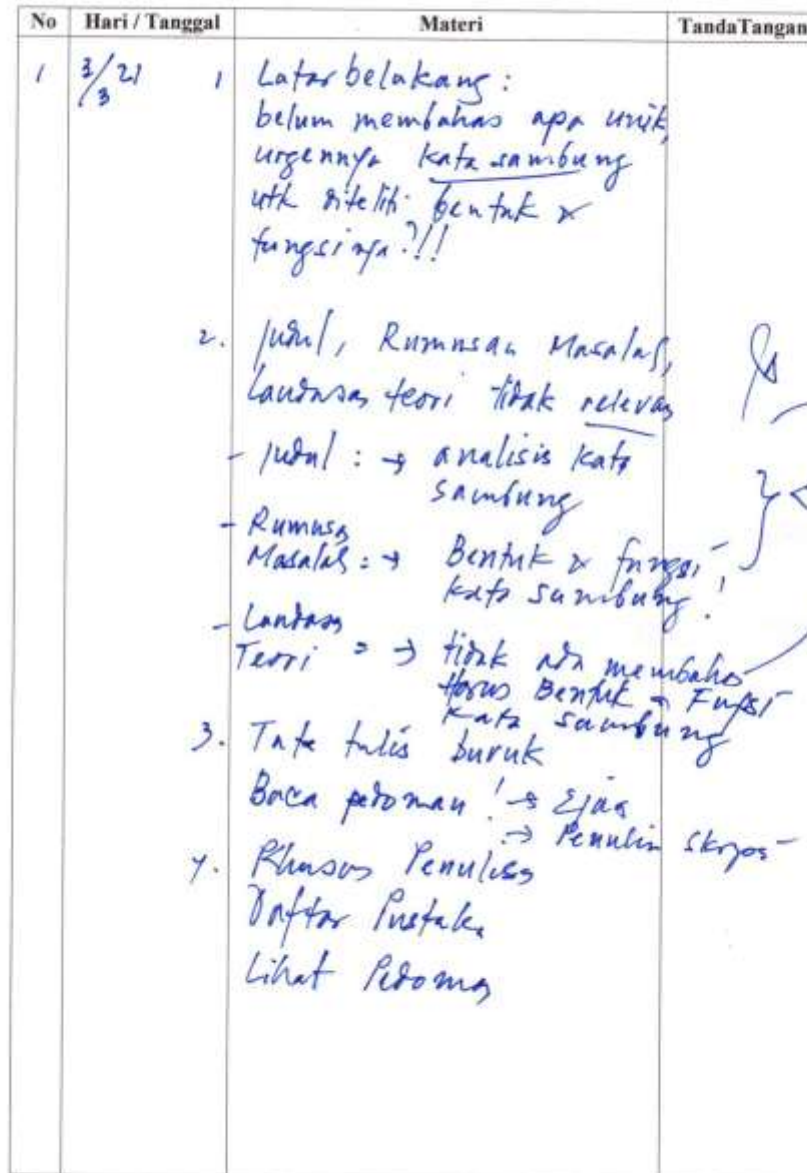 No Hari / Tanggal Materi TandaTangan
1 3/3 21 1 Latar belakang :
belum membahas apa unik,
urgennya kata sambung
utk diteliti bentuk &
fungsinya ?!!!
2. Judul, Rumusan Masalah,
Landasan teori tidak relevan
- Judul : → analisis kata
sambung
- Rumusan
Masalah : → Bentuk & fungsi
kata sambung !
- Landasan
Teori : → tidak ada membahas
Bentuk & Fungsi
kata sambung
3. Tata tulis buruk
Baca pedoman ! → Ejaan
→ Penulisan Skripsi
4. Khusus Penulisan
Daftar Pustaka
Lihat Pedoman